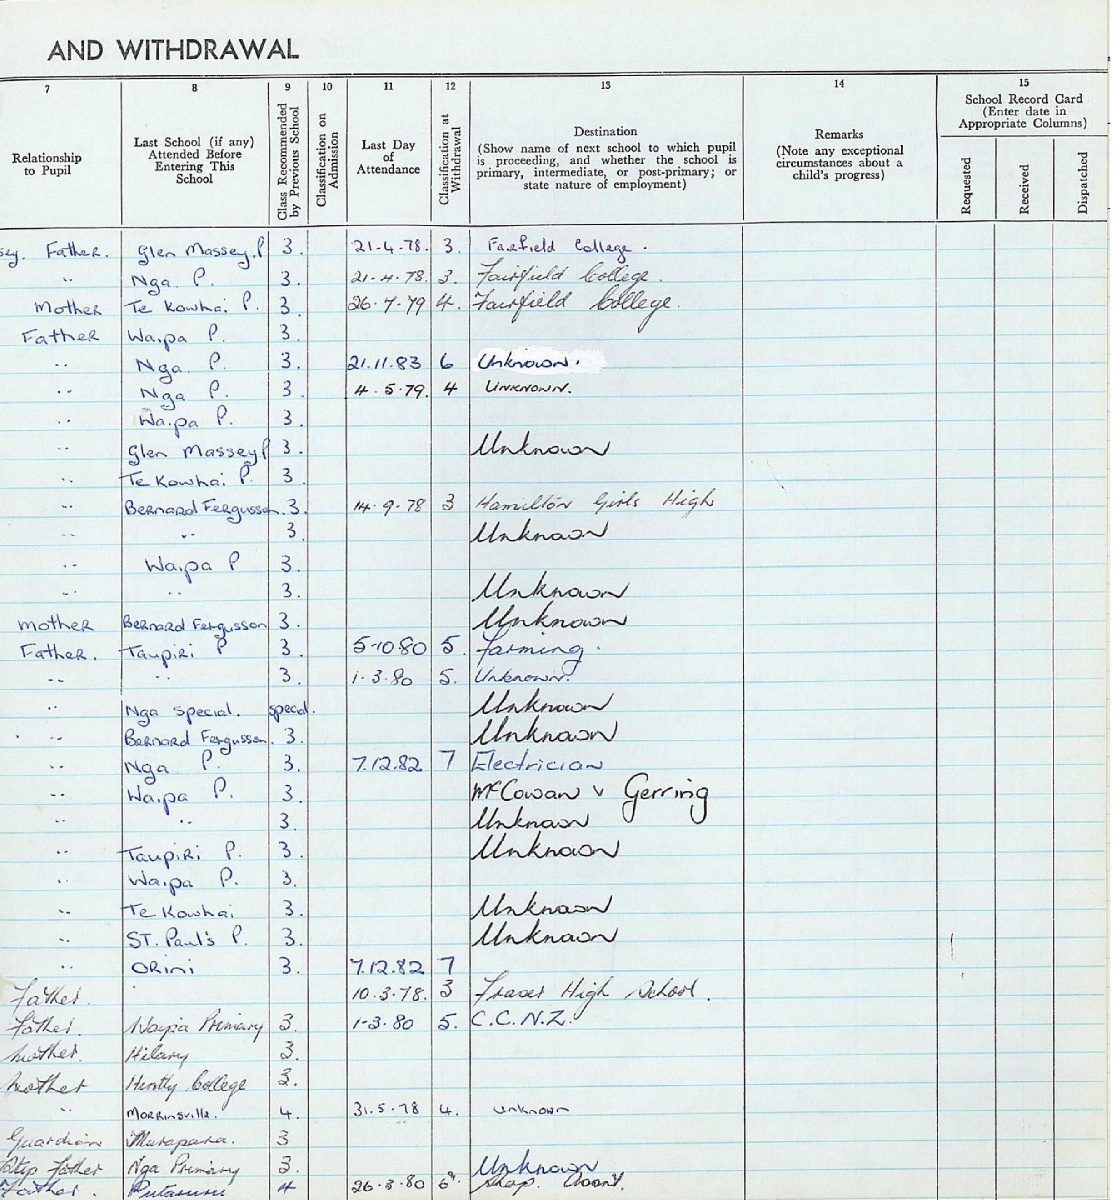 AND WITHDRAWAL
7 8 9 10 11 12 13 14 15
Relationship to Pupil
Last School (if any) Attended Before Entering This School
Class Recommended by Previous School
Classification on Admission
Last Day of Attendance
Classification at Withdrawal
Destination
(Show name of next school to which pupil is proceeding, and whether the school is primary, intermediate, or post-primary; or state nature of employment)
Remarks
(Note any exceptional circumstances about a child's progress)
School Record Card
(Enter date in Appropriate Columns)
Requested
Received
Dispatched
sey. Father. Glen Massey P 3. 21-4-78. 3. Fairfield College.
" Nga P. 3. 21-4-78 3. Fairfield College.
Mother Te Kowhai P. 3. 26-7-79 4. Fairfield College.
Father Waipa P. 3.
" Nga P. 3. 21.11.83 6 Unknown.
" Nga P. 3 4.5.79. 4 Unknown.
" Waipa P. 3.
" Glen Massey P 3. Unknown
" Te Kowhai P. 3
" Bernard Fergusson. 3. 14-9-78 3 Hamilton Girls High
" " 3. Unknown
" Waipa P 3.
" " 3. Unknown
mother Bernard Fergusson 3. Unknown
Father. Taupiri P 3. 5-10-80 5. farming.
" " 3. 1.3.80 5. Unknown.
" Nga Special. special. Unknown
" Bernard Fergusson. 3. Unknown
" Nga P. 3. 7.12.82 7 Electrician
" Waipa P. 3. McCowan v Gerring
" " 3. Unknown
" Taupiri P. 3. Unknown
" Waipa P. 3.
" Te Kowhai 3. Unknown
" ST. Paul's P. 3. Unknown
" Orini 3. 7.12.82 7
Father. 10.3.78. 3 Fraser High School.
Father. Waipa Primary 3. 1-3.80 5. C.C.N.Z.
Mother. Hilary 3.
Mother Huntly College 3.
" Morrinsville. 4. 31.5.78 4. Unknown
Guardian Murapara. 3
Step Father Nga Primary 3. Unknown
Father. Putaruru 4 26.3.80 6 Shop.